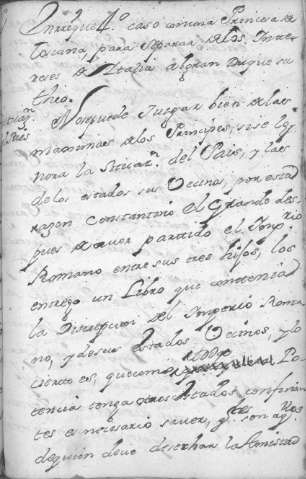 Enrrique 4.º caso con una Princesa de
Toscana, para separar de los Intre-
reses de Italia al gran Duque su
thio.
No puede Juzgar bien de las
maximas de los Principes, si se Ig-
nora la Situaz.n del Pais, y las
de los estados sus Vecinos, por esta
razon Constantino el Grande des-
pues de aver partido el Imp.rio
Romano entre sus tres hijos, los
entrego un Libro que contenia
la Discrepcion del Imperio Roma
no, y de sus Estados Vecinos, y lo
cierto es, que como Po-
tencia tenga Estados confinan
tes es necesario saver, q.e son aq.llos
de quien deve desechar la amistad